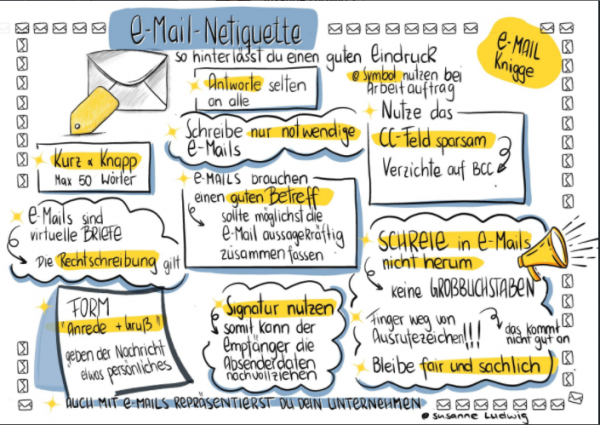 e-Mail-Netiquette
so hinterlässt du einen guten Eindruck
e-MAIL
Knigge
Antworte selten
an alle
@ Symbol nutzen bei
Arbeitauftrag
Schreibe nur notwendige
e-Mails
Nutze das
CC-Feld sparsam
Verzichte auf BCC
Kurz & Knapp
Max 50 Wörter
e-MAILS brauchen
einen guten Betreff
sollte möglichst die
e-Mail aussagekräftig
zusammen fassen
e-Mails sind
virtuelle BRIEFE
Die Rechtschreibung gilt
SCHREIE in e-Mails
nicht herum
keine GROßBUCHSTABEN
FORM
"Anrede + Gruß"
geben der Nachricht
etwas persönliches
Signatur nutzen
somit kann der
Empfänger die
Absenderdaten
nachvollziehen
Finger weg von
Ausrufezeichen!!!
das kommt
nicht gut an
Bleibe fair und sachlich
AUCH MIT e-MAILS REPRÄSENTIERST DU DEIN UNTERNEHMEN
@susanne Ludwig